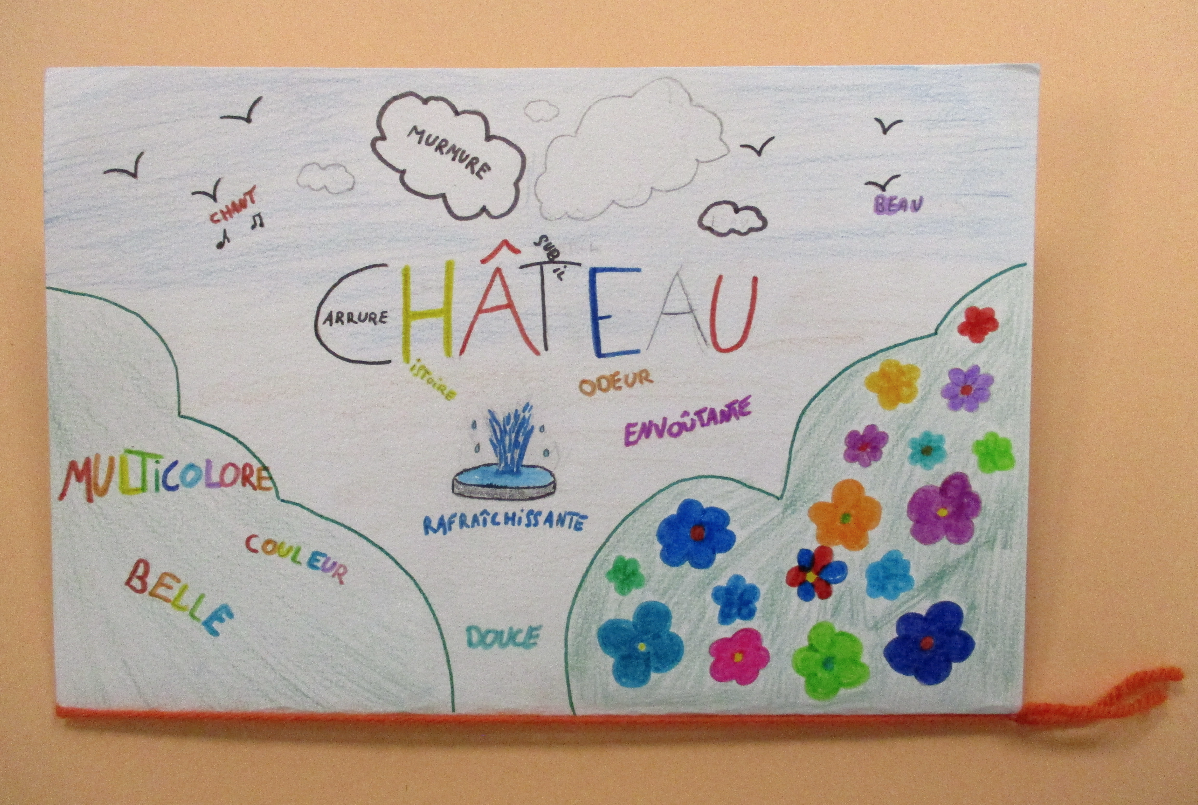 MURMURE
CHANT
BEAU
SUBTIL
CHÂTEAU
ARRURE
iSTOiRE
ODEUR
ENVOÛTANTE
MULTiCOLORE
RAFRAÎCHiSSANTE
COULEUR
BELLE
DOUCE